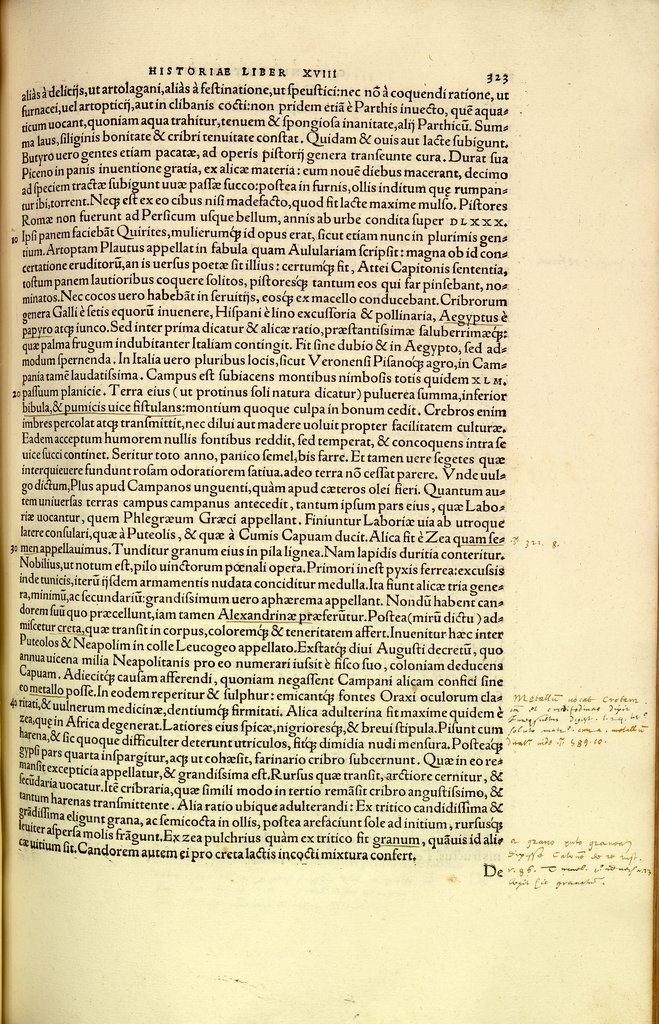 HISTORIAE LIBER XVIII
323
aliàs à delicijs, ut artolagani, aliàs à festinatione, ut speustici: nec nõ à coquendi ratione, ut
furnacei, uel artopticij, aut in clibanis cocti: non pridem etiã è Parthis inuecto, quẽ aqua=
ticum uocant, quoniam aqua trahitur, tenuem & spongiosa inanitate, alij Parthicũ. Sum=
ma laus, siliginis bonitate & cribri tenuitate constat. Quidam & ouis aut lacte subigunt.
Butyro uero gentes etiam pacatæ, ad operis pistorij genera transeunte cura. Durat sua
Piceno in panis inuentione gratia, ex alicæ materia: eum nouẽ diebus macerant, decimo
ad speciem tractæ subigunt uuæ passæ succo: postea in furnis, ollis inditum quę rumpan=
tur ibi, torrent. Neqꝫ est ex eo cibus nisi madefacto, quod fit lacte maxime mulso. Pistores
Romæ non fuerunt ad Persicum usque bellum, annis ab urbe condita super DLXXX.
10 Ipsi panem faciebãt Quirites, mulierumqꝫ id opus erat, sicut etiam nunc in plurimis gen=
tium. Artoptam Plautus appellat in fabula quam Aululariam scripsit: magna ob id con=
certatione eruditorũ, an is uersus poetæ sit illius: certumqꝫ fit, Attei Capitonis sententia,
tostum panem lautioribus coquere solitos, pistoresqꝫ tantum eos qui far pinsebant, no=
minatos. Nec cocos uero habebãt in seruitijs, eosqꝫ ex macello conducebant. Cribrorum
genera Galli è setis equorũ inuenere, Hispani è lino excussoria & pollinaria, Aegyptus è
papyro atqꝫ iunco. Sed inter prima dicatur & alicæ ratio, præstantissimæ saluberrimæqꝫ:
quæ palma frugum indubitanter Italiam contingit. Fit sine dubio & in Aegypto, sed ad=
modum spernenda. In Italia uero pluribus locis, sicut Veronensi Pisanoqꝫ agro, in Cam=
pania tamẽ laudatissima. Campus est subiacens montibus nimbosis totis quidem XLM.
20 passuum planicie. Terra eius (ut protinus soli natura dicatur) puluerea summa, inferior
bibula, & pumicis uice fistulans: montium quoque culpa in bonum cedit. Crebros enim
imbres percolat atqꝫ transmittit, nec dilui aut madere uoluit propter facilitatem culturæ.
Eadem acceptum humorem nullis fontibus reddit, sed temperat, & concoquens intra se
uice succi continet. Seritur toto anno, panico semel, bis farre. Et tamen uere segetes quæ
interquieuere fundunt rosam odoratiorem satiua. adeo terra nõ cessat parere. Vnde uul=
go dictum, Plus apud Campanos unguenti, quàm apud cæteros olei fieri. Quantum au=
tem uniuersas terras campus campanus antecedit, tantum ipsum pars eius, quæ Labo=
riæ uocantur, quem Phlegræum Græci appellant. Finiuntur Laboriæ uia ab utroque
latere consulari, quæ à Puteolis, & quæ à Cumis Capuam ducit. Alica fit è Zea quam se=
30 men appellauimus. Tunditur granum eius in pila lignea. Nam lapidis duritia conteritur.
Nobilius, ut notum est, pilo uinctorum pœnali opera. Primori inest pyxis ferrea: excussis
inde tunicis, iterũ ijsdem armamentis nudata conciditur medulla. Ita fiunt alicæ tria gene=
ra, minimũ, ac secundariũ: grandissimum uero aphærema appellant. Nondũ habent can=
dorem suũ quo præcellunt, iam tamen Alexandrinæ præferũtur. Postea (mirũ dictu) ad=
miscetur creta, quæ transit in corpus, coloremqꝫ & teneritatem affert. Inuenitur hæc inter
Puteolos & Neapolim in colle Leucogeo appellato. Exstatqꝫ diui Augusti decretũ, quo
annua uicena milia Neapolitanis pro eo numerari iussit è fisco suo, coloniam deducens
Capuam. Adiecitqꝫ causam afferendi, quoniam negassent Campani alicam confici sine
eo metallo posse. In eodem reperitur & sulphur: emicantqꝫ fontes Oraxi oculorum cla=
40 ritati, & uulnerum medicinæ, dentiumqꝫ firmitati. Alica adulterina fit maxime quidem è
zea, que in Africa degenerat. Latiores eius spicæ, nigrioresqꝫ, & breui stipula. Pisunt cum
harena, & sic quoque difficulter deterunt utriculos, fitqꝫ dimidia nudi mensura. Posteaqꝫ
gypsi pars quarta inspargitur, atqꝫ ut cohæsit, farinario cribro subcernunt. Quæ in eo re=
mansit excepticia appellatur, & grandissima est. Rursus quæ transit, arctiore cernitur, &
secũdaria uocatur. Itẽ cribraria, quæ simili modo in tertio remãsit cribro angustissimo, &
tantum harenas transmittente. Alia ratio ubique adulterandi: Ex tritico candidissima &
grãdissima eligunt grana, ac semicocta in ollis, postea arefaciunt sole ad initium, rursusqꝫ
leuiter aspersa molis frãgunt. Ex zea pulchrius quàm ex tritico fit granum, quãuis id ali=
cæ uitium sit. Candorem autem ei pro creta lactis incocti mixtura confert.
De
321. 8.
Metallũ uocat Cretam